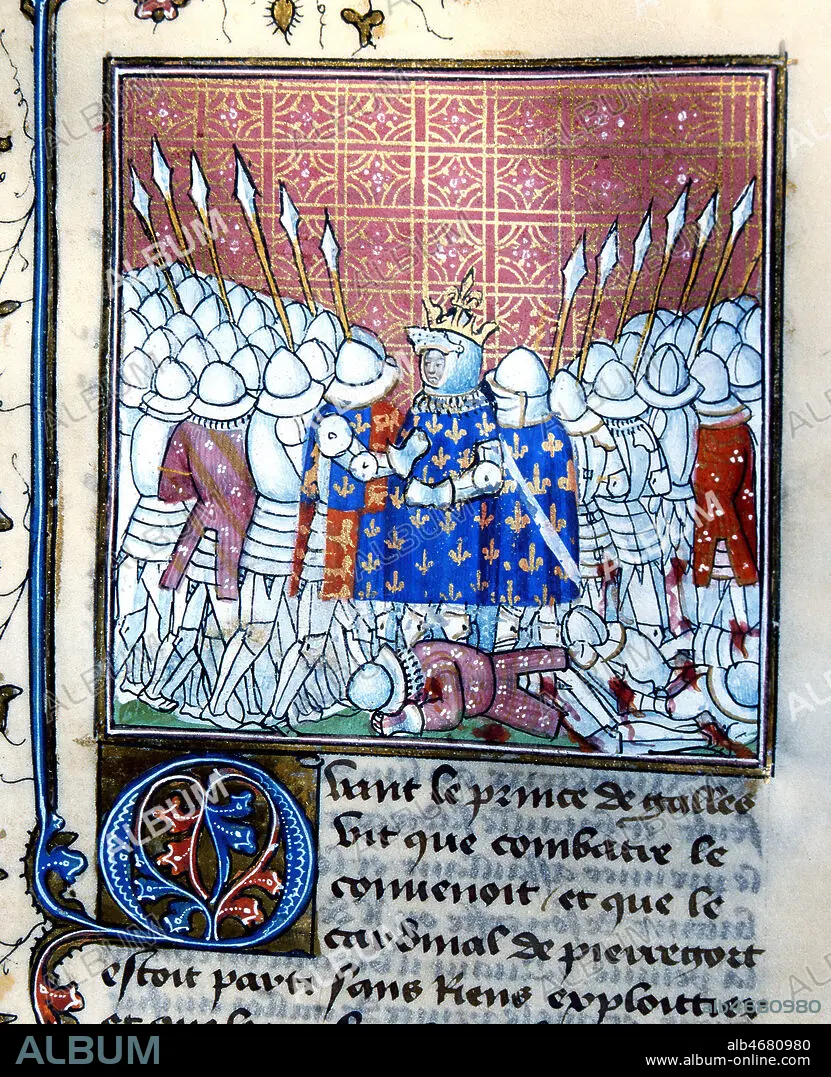 Quant le prince de galles
vit que combatre le
convenoit / et que le
cardinal de pierregort
estoit parti sans Riens exploittier
ALBUM
alb4680980
ALBUM
alb4680980
www.album-online.com